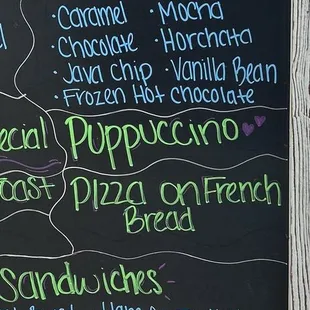 ·Caramel ·Mocha
·Chocolate ·Horchata
·Java Chip ·Vanilla Bean
·Frozen Hot Chocolate
ecial Puppuccino
oast Pizza on French
Bread
Sandwiches